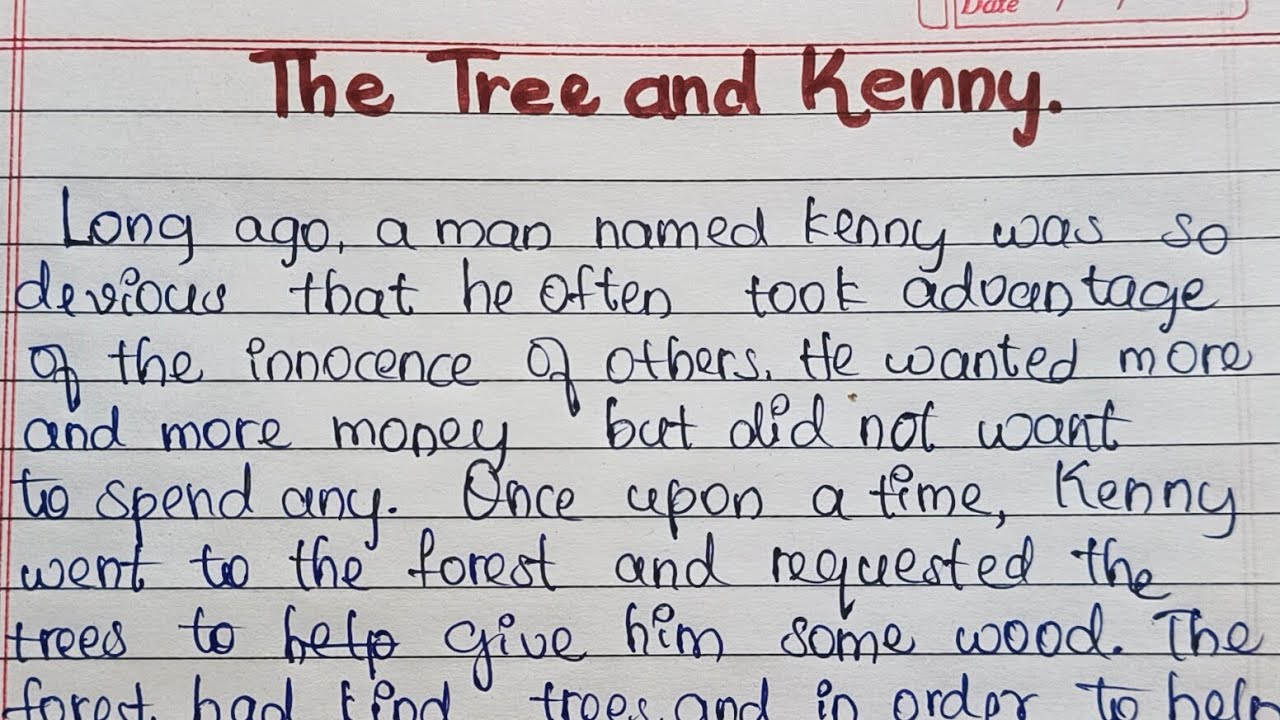 Date / /
The Tree and Kenny.
Long ago, a man named Kenny was so
devious that he often took advantage
of the innocence of others. He wanted more
and more money but did not want
to spend any. Once upon a time, Kenny
went to the forest and requested the
trees to help give him some wood. The
forest had kind trees and in order to help